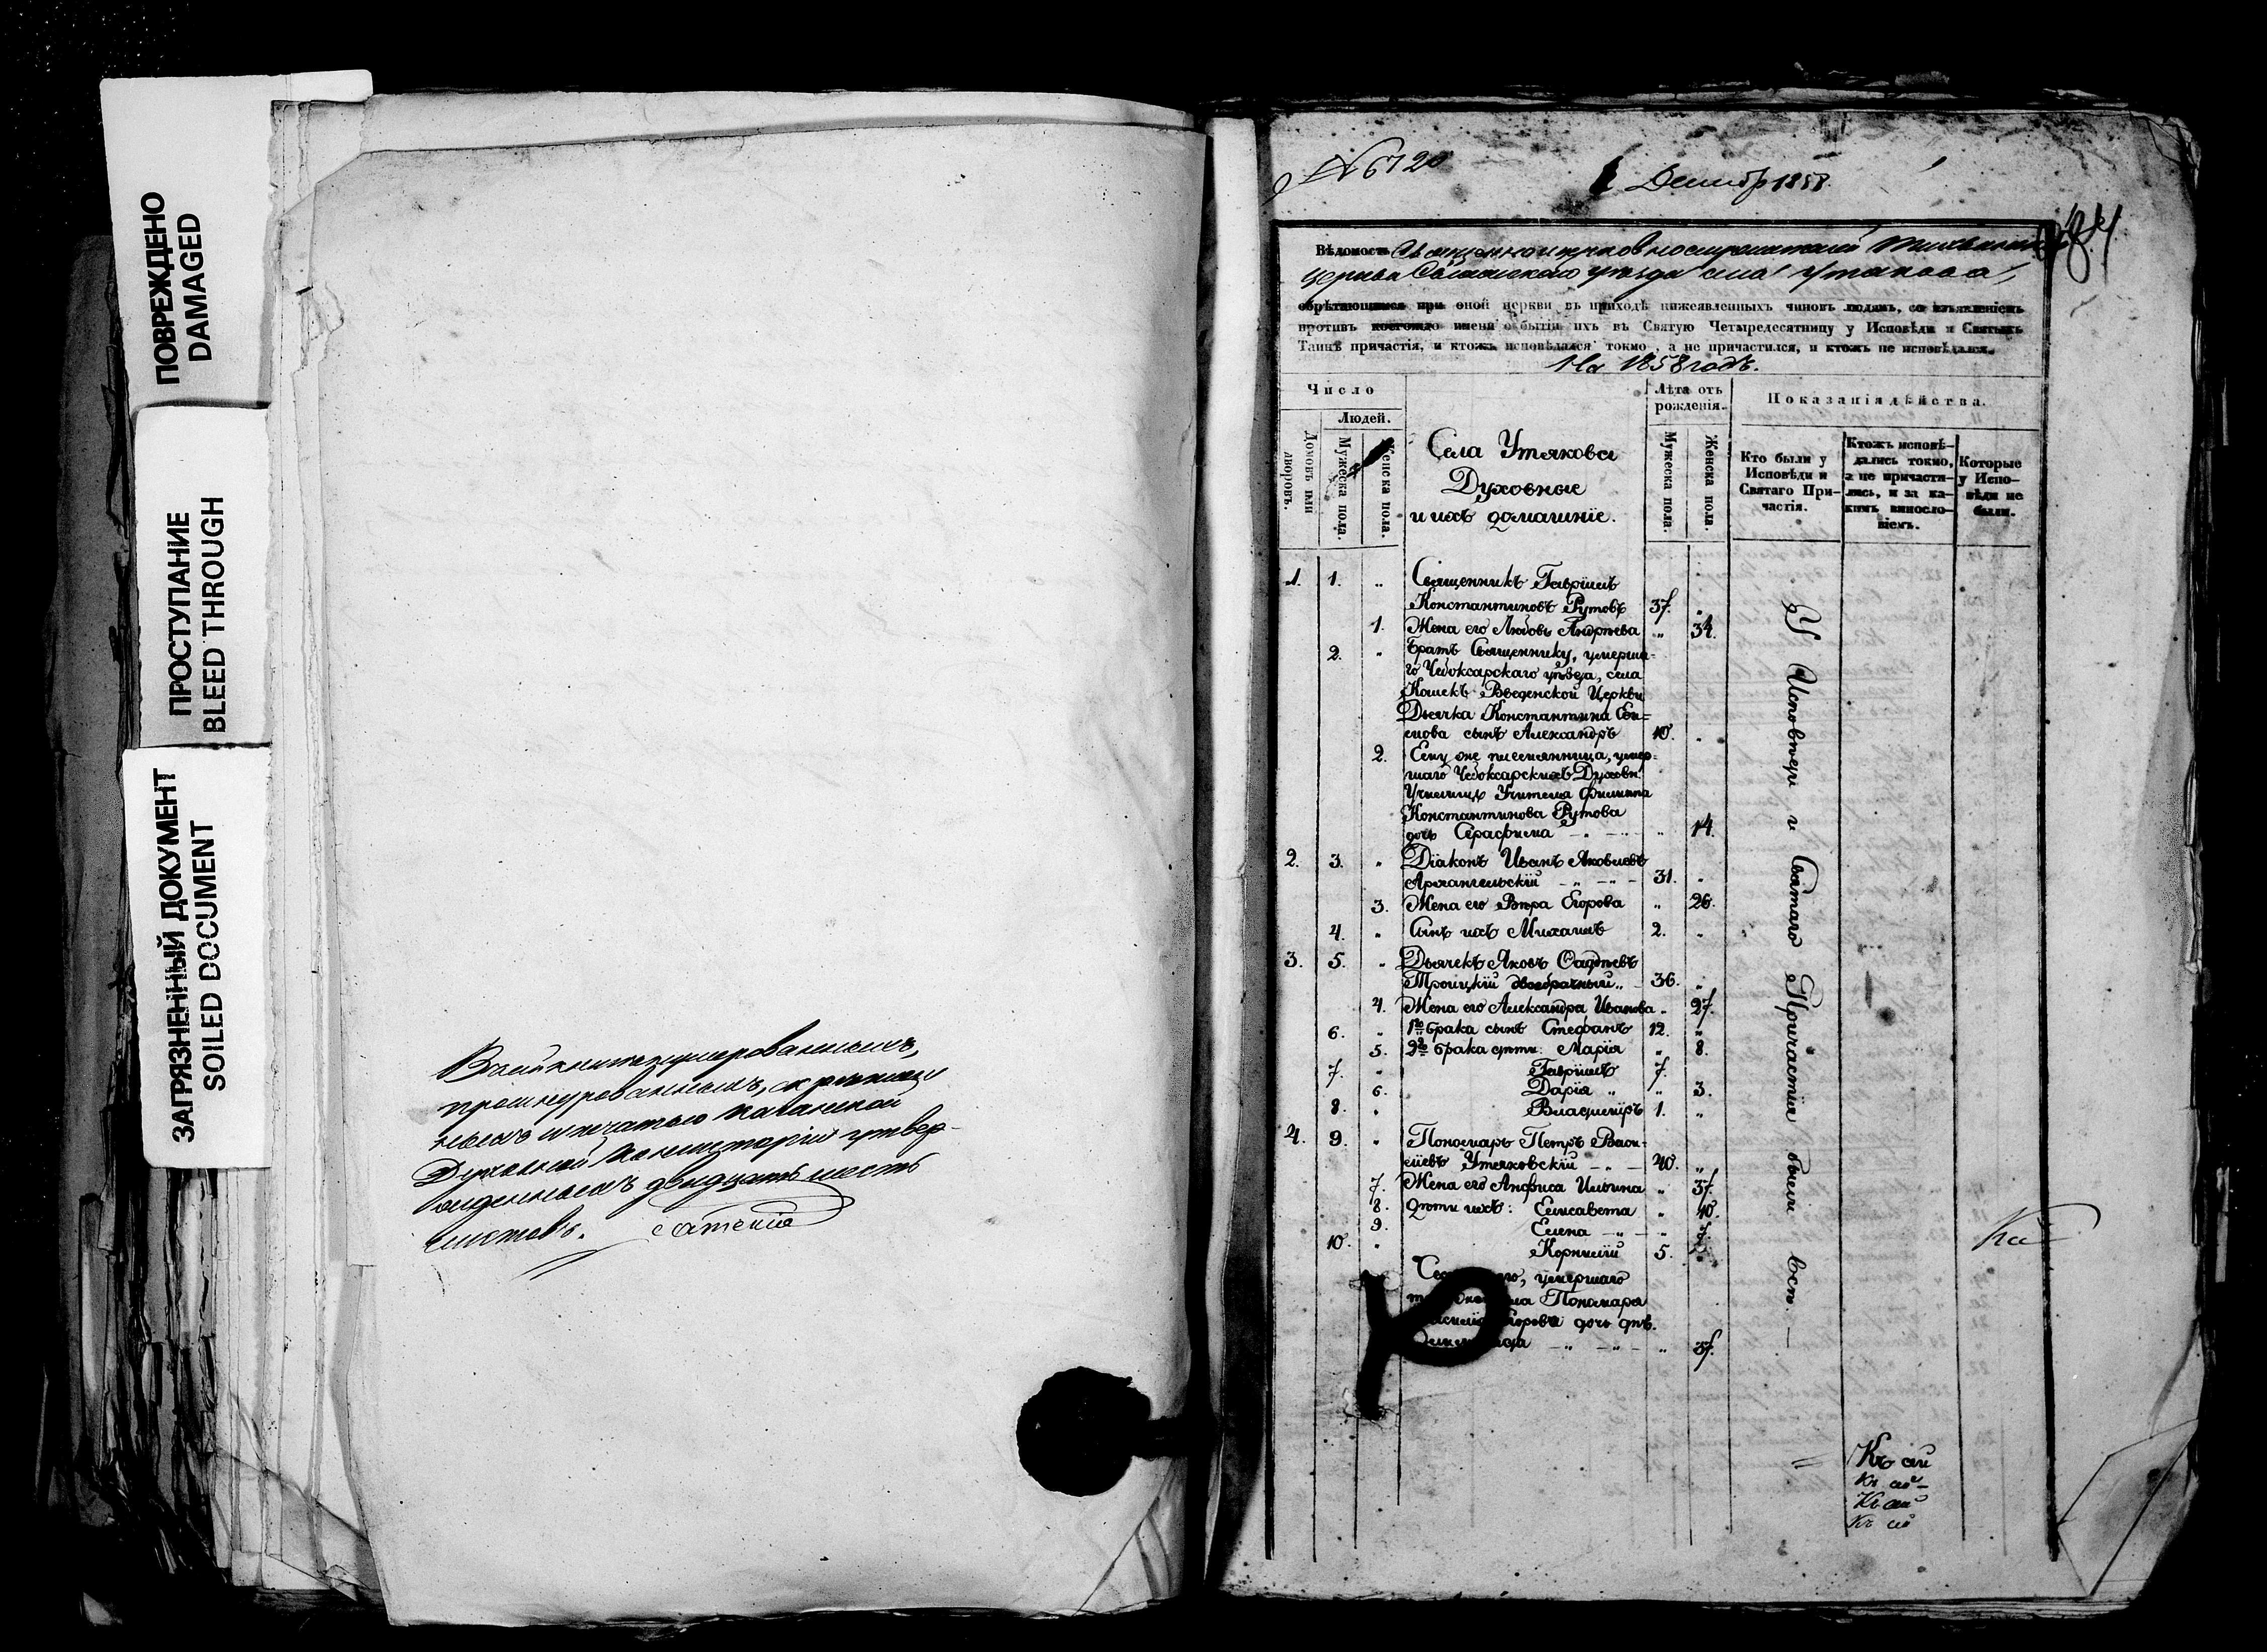 ПОВРЕЖДЕНО
DAMAGED
ПРОСТУПАНИЕ
BLEED THROUGH
ЗАГРЯЗНЕННЫЙ ДОКУМЕНТ
SOILED DOCUMENT
В сей книге нумерованныхъ,
прошнурованныхъ, скреплен
ныхъ и печатью Казанской
Духовной Консисторіи утвер-
жденныхъ двадцать шесть
листовъ.
№ 6720
Декабр 1858.
Вѣдомость Священноицерковнослужителей
церкви уѣзда села Утякова,
обрѣтающимся при оной церкви въ приходѣ нижеявленныхъ чиновъ людямъ, со изъявленіемъ
противъ коегождо имени о бытіи ихъ въ Святую Четыредесятницу у Исповѣди и Святыхъ
Таинъ причастія, и ктожъ исповѣдался токмо, а не причастился, и ктожъ не исповѣдался.
На 1858 годъ.
Число
Людей.
Домовъ или дворовъ.
Мужеска пола.
Женска пола.
Села Утякова
Духовные
и ихъ домашніе.
Лѣта отъ рожденія.
Мужеска пола.
Женска пола.
Показанія дѣйства.
Кто были у Исповѣди и Святаго Причастія.
Ктожъ исповѣдались токмо, а не причастились, и за какимъ винословіемъ.
Которые у Исповѣди не были.
1. 1. „ Священникъ Гавріилъ
Константиновъ Рутовъ 37. „
1. Жена его Любовь Андреева „ 34.
2. „ Братъ Священнику, умерша-
го Чебоксарскаго уѣзда, села
Кошекъ Введенской Церкви
Дьячка Константина Се-
менова сынъ Александръ 10. „
2. Ему же племянница, умер-
шаго Чебоксарскихъ Духовн.
Училищъ Учителя Филиппа
Константинова Рутова
дочь Серафима „ 14.
2. 3. „ Діаконъ Иванъ Яковлевъ
Архангельскій 31. „
3. Жена его Вѣра Егорова „ 26.
4. „ Сынъ ихъ Михаилъ 2. „
3. 5. „ Дьячекъ Яковъ Фадѣевъ
Троицкій двоебрачный 36. „
4. Жена его Александра Иванова „ 27.
6. „ 1го брака сынъ Стефанъ 12. „
5. 2го брака дѣти: Марія „ 8.
7. „ Гавріилъ 7.
6. Дарія „ 3.
8. „ Владиміръ 1. „
4. 9. „ Пономарь Петръ Васи-
льевъ Утяковскій 40. „
7. Жена его Анфиса Ильина „ 37.
8. Дѣти ихъ: Елисавета „ 10.
9. Елена „ 7.
10. „ Корнилій 5. „
умершаго
Пономаря
дочь дѣв.
„ 37.
У Исповѣди и Святаго Причастія были всѣ —
Ка
Къ сей
Къ сей
Къ сей
Къ сей